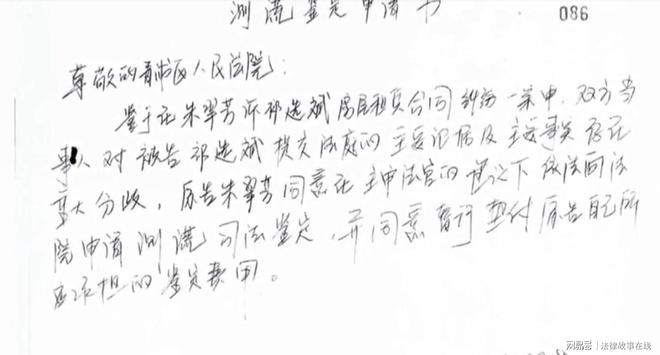 测谎鉴定申请书
086
尊敬的青浦区人民法院：
鉴于在朱翠芳诉祁选斌房屋租赁合同纠纷一案中，双方当
事人对被告祁选斌提交法庭的主要证据及主要事实存在
重大分歧，原告朱翠芳同意在主审法官的建议下依法向法
院申请测谎司法鉴定，并同意暂行垫付原告自己所
应承担的鉴定费用。
网易号 | 法律故事在线